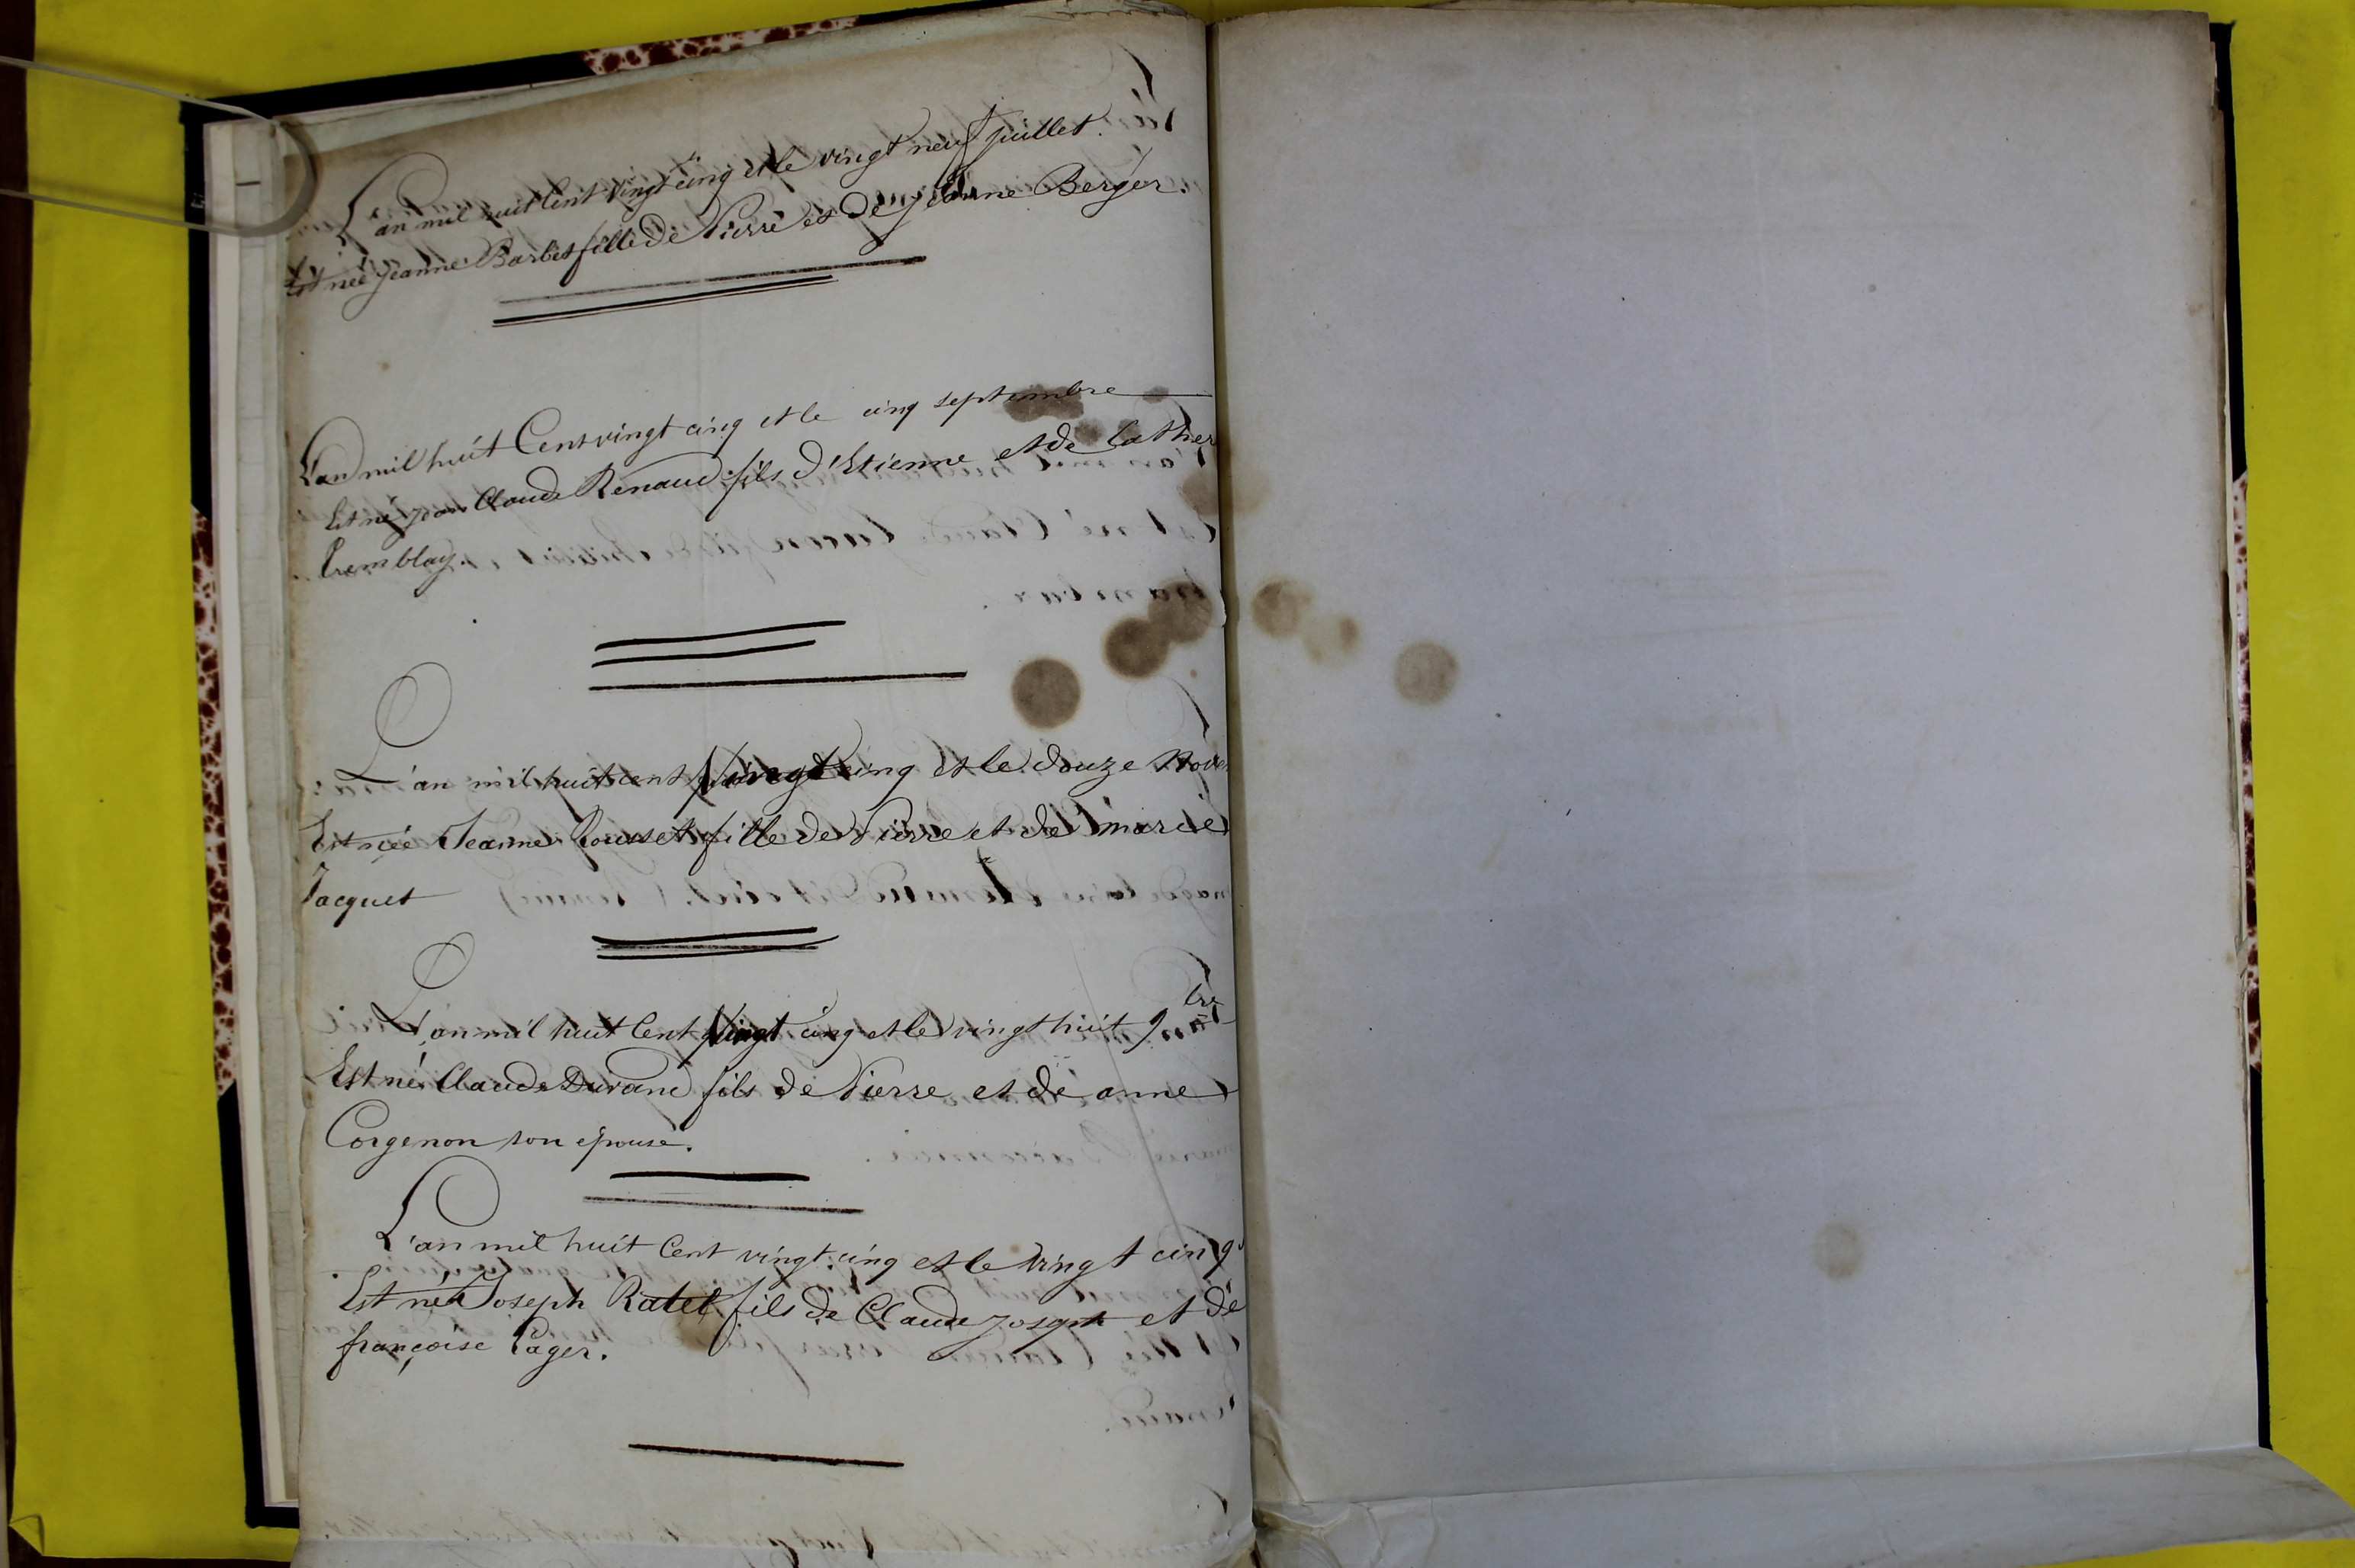 L'an mil huit Cent vingt cinq et le vingt neuf juillet.
Est née jeanne Barbet fille de Pierre et de jeanne Berger.
L'an mil huit Cent vingt cinq et le cinq septembre
Est né jean Claude Renaud fils d'Etienne et de Cather
Tremblay.
L'an mil huit cent vingt cinq et le douze Nove
Est née Jeanne Rousset fille de Pierre et de marie
Jacquet
L'an mil huit Cent Vingt cinq et le vingt huit 9bre
Est né Claude Durand fils de Pierre et de anne
Corgenon son épouse.
L'an mil huit Cent vingt cinq et le vingt cinq
Est né Joseph Ratel fils de Claude joseph et de
françoise Pager.